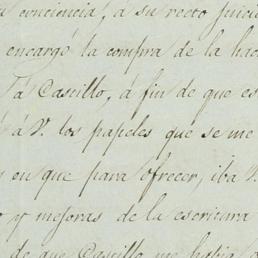 conciencia, á su recto juicio
encargó la compra de la hac
á Castillo, á fin de que es
á V. los papeles que se me
en que para ofrecer, iba V.
y mejoras de la escritura
de que Castillo me habia